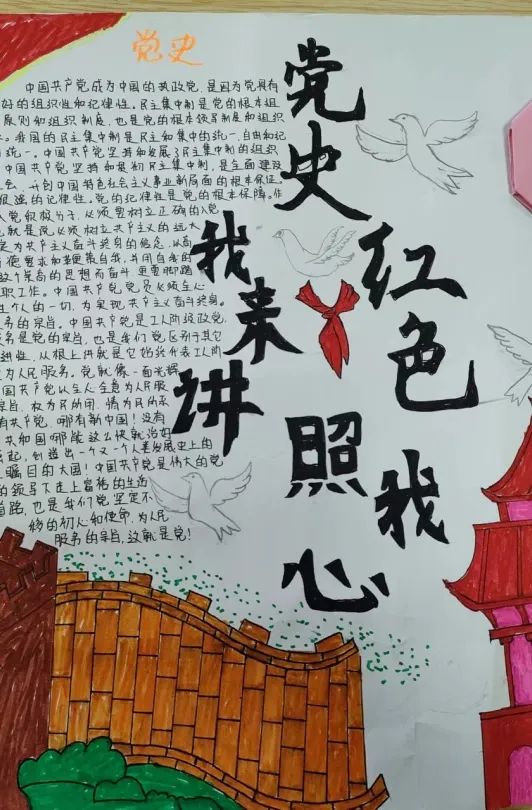 党史
中国共产党成为中国的执政党,是因为党具有
好的组织性和纪律性。民主集中制是党的根本组
原则和组织制度,也是党的根本领导制度和组织
。我国的民主集中制是民主和集中的统一,自由和纪
的统一。中国共产党坚持和发展了民主集中制的组织
中国共产党坚持和最初民主集中制,是全面建设
会,开创中国特色社会主义事业新局面的根本保证
很强的记律性。党的纪律性是党的根本保障。作
入党积极分子,必须要树立正确的入党
也就是说必须树立共产主义的远大
定为共产主义奋斗终身的信念,以高
德要求和来鞭策自我,并用自我的
这个崇高的思想而奋斗,更要脚踏
职工作。中国共产党党员必须全心
生个人的一切,为实现共产主义奋斗终身。
务的宗旨。中国共产党是工人阶级政党,
务是党的宗旨,也是我们党区别于其它
进性,从根上讲就是它始终代表工人阶
为人民服务。党就像一面光辉
国共产党以全人全意为人民服
宗旨,权为民所用,情为民所系
有共产党,哪有新中国!没有
共和国哪能这么快就治好
起,创造出一个又一个人类发展史上的
瞩目的大国!中国共产党是伟大的党
的领导下走上富裕的生活
道路,也是我们党坚定不
移的初人和使命,为人民
服务的宗旨,这就是党!
党史红色照我心
我来讲